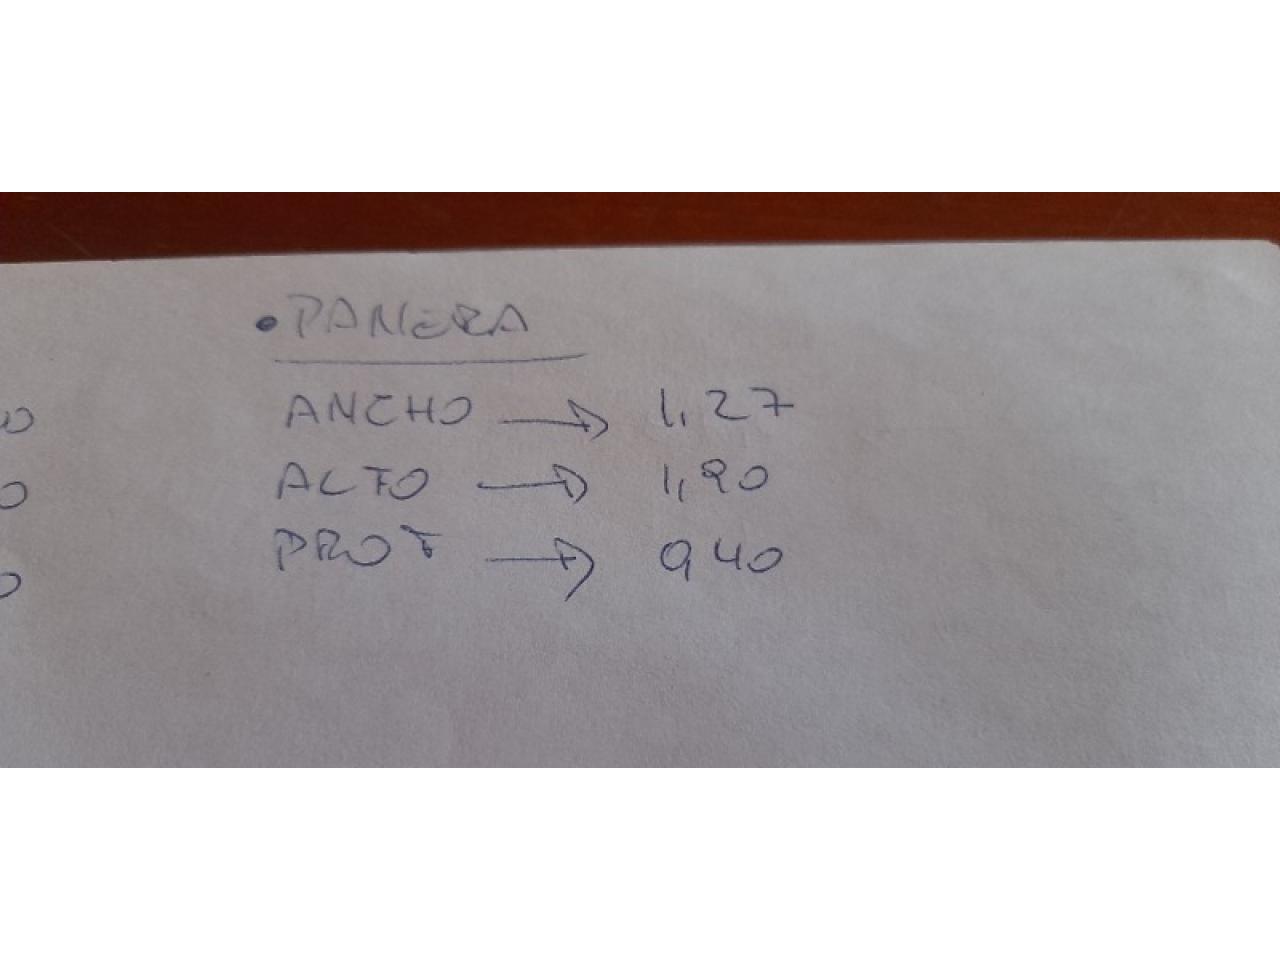 • PANERA
ANCHO → 1,27
ALTO → 1,90
PROF → 0,40